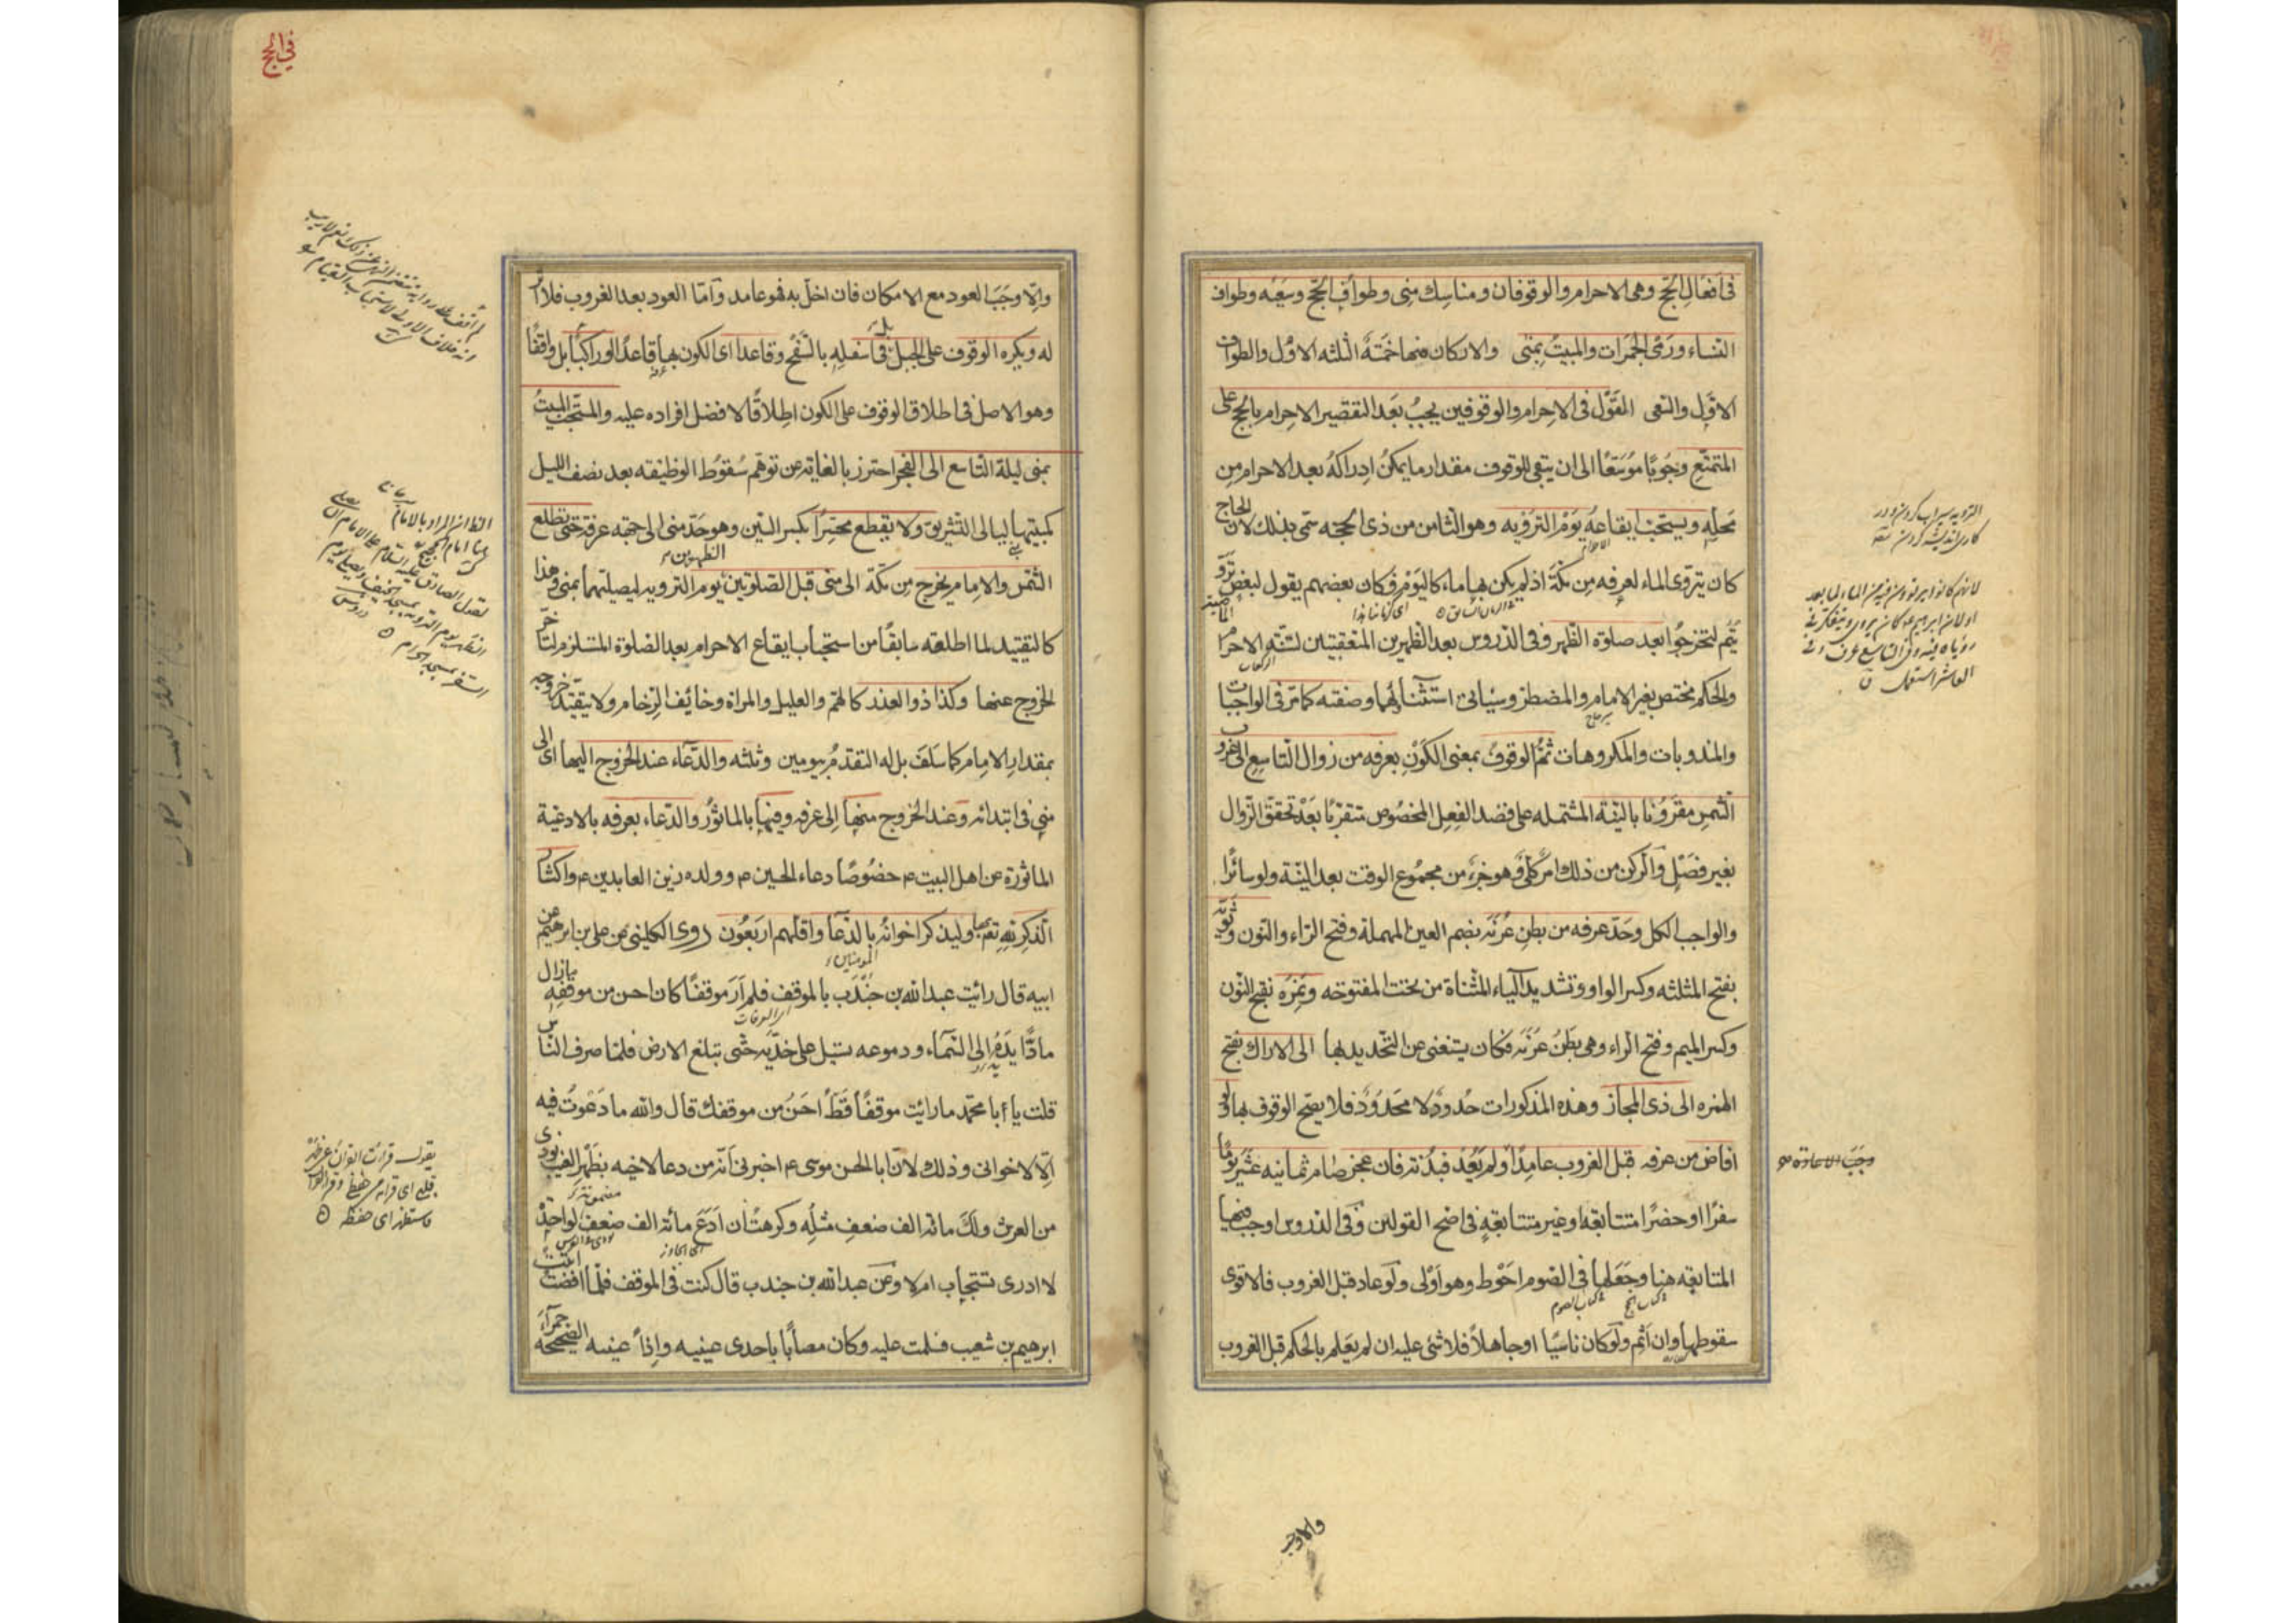 فى افعال الحج وهى الاحرام والوقوفان ومناسك منى وطواف الحج وسعيه وطواف
النساء ورمى الجمرات والمبيت بمنى والاركان منها خمسة الثلثه الاول والطواف
الاول والسعى القول فى الاحرام والوقوفين يجب بعد التقصير الاحرام بالحج على
المتمتع وجوبا موسعا الى ان يبقى للوقوف مقدار ما يمكن ادراكه بعد الاحرام من
محله ويستحب ايقاعه يوم الترويه وهو الثامن من ذى الحجه سمى بذلك لان الحاج
كان يتروى الماء لعرفه من مكة اذ لم يكن بها ماء كاليوم فكان بعضهم يقول لبعض تروّ
يتم لتخرجوا بعد صلوة الظهر وفى الدروس بعد الظهرين المتعقبتين لسنة الاحرام
والحكم مختص بغير الامام والمضطر وسياتى استثناؤهما وصفته كما مر فى الواجبات
والمندوبات والمكروهات ثم الوقوف بمعنى الكون بعرفه من زوال التاسع الى الغروب
الشمس مقرونا بالنية المشتمله على قصد الفعل المخصوص متقربا بعد تحقق الزوال
بغير فصل والركن من ذلك امر كلى وهو جزء من مجموع الوقت بعد النية ولو سائرا
والواجب الكل وحد عرفه من بطن عرنه بضم العين المهملة وفتح الراء والنون وثويه
بفتح المثلثه وكسر الواو وتشديد الياء المثناة من تحت المفتوحه ونمره بفتح النون
وكسر الميم وفتح الراء وهى بطن عرنه فكان يستغنى عن التحديد بها الى الاراك بفتح
الهمزه الى ذى المجاز وهذه المذكورات حدود لا محدود فلا يصح الوقوف بها ولو
افاض من عرفه قبل الغروب عامدا ولم يعد فبدنه فان عجز صام ثمانيه عشر يوما
سفرا او حضرا متتابعة او غير متتابعة فى اصح القولين وفى الدروس اوجب فيها
المتابعه هنا وجعلها فى الصوم احوط وهو اولى ولو عاد قبل الغروب فالاقوى
سقوطها وان اثم ولو كان ناسيا او جاهلا فلا شئ عليه ان لم يعلم بالحكم قبل الغروب
وجبت الاعادة
والا وجب
فى الحج
والا وجب العود مع الامكان فان اخل به فهو عامد واما العود بعد الغروب فلا اثر
له ويكره الوقوف على الجبل بل فى اسفله بالسفح وقاعدا اى الكون بها قاعدا او راكبا بل واقفا
وهو الاصل فى اطلاق الوقوف على الكون اطلاقا لافضل افراده عليه والمستحب المبيت
بمنى ليلة التاسع الى الفجر احترز بالغايه عن توهم سقوط الوظيفه بعد نصف الليل
كمبيتها ليالى التشريق ولا يقطع محسرا بكسر السين وهو حد منى الى جهة عرفة حتى تطلع
الشمس والامام يخرج من مكة الى منى قبل الصلوتين الظهرين يوم الترويه ليصليهما بمنى وهذا
كالتقييد لما اطلقه سابقا من استحباب ايقاع الاحرام بعد الصلوة المستلزم لتاخر
الخروج عنها وكذا ذو العذر كالهم والعليل والمراه وخائف الزحام ولا يتقيد خروجه
بمقدار الامام كما سلف بل له التقدم بيومين وثلثه والدعاء عند الخروج اليها اى الى
منى فى ابتدائه وعند الخروج منها الى عرفه وفيها بالماثور والدعاء بعرفه بالادعية
الماثورة عن اهل البيت ع خصوصا دعاء الحسين ع وولده زين العابدين ع واكثار
الذكر لله تعالى بها وليذكر اخوانه بالدعاء واقلهم اربعون روى الكلينى عن على بن ابرهيم عن
ابيه قال رايت عبدالله بن جندب بالموقف فلم ار موقفا كان احسن من موقفه مازال
مادا يده الى السماء ودموعه تسيل على خديه حتى تبلغ الارض فلما صرف الناس
قلت يا أبا محمد ما رايت موقفا قط احسن من موقفك قال والله ما دعوت فيه
الا لاخوانى وذلك لان ابا الحسن موسى ع اخبرنى انه من دعا لاخيه بظهر الغيب نودى
من العرش ولك مائه الف ضعف مثله وكرهت ان ادع مائه الف ضعف لواحدة
لا ادرى تستجاب ام لا وعن عبدالله بن جندب قال كنت فى الموقف فلما افضت اتيت
ابرهيم بن شعيب فسلمت عليه وكان مصابا باحدى عينيه واذا عينه الصحيحه حمرآء